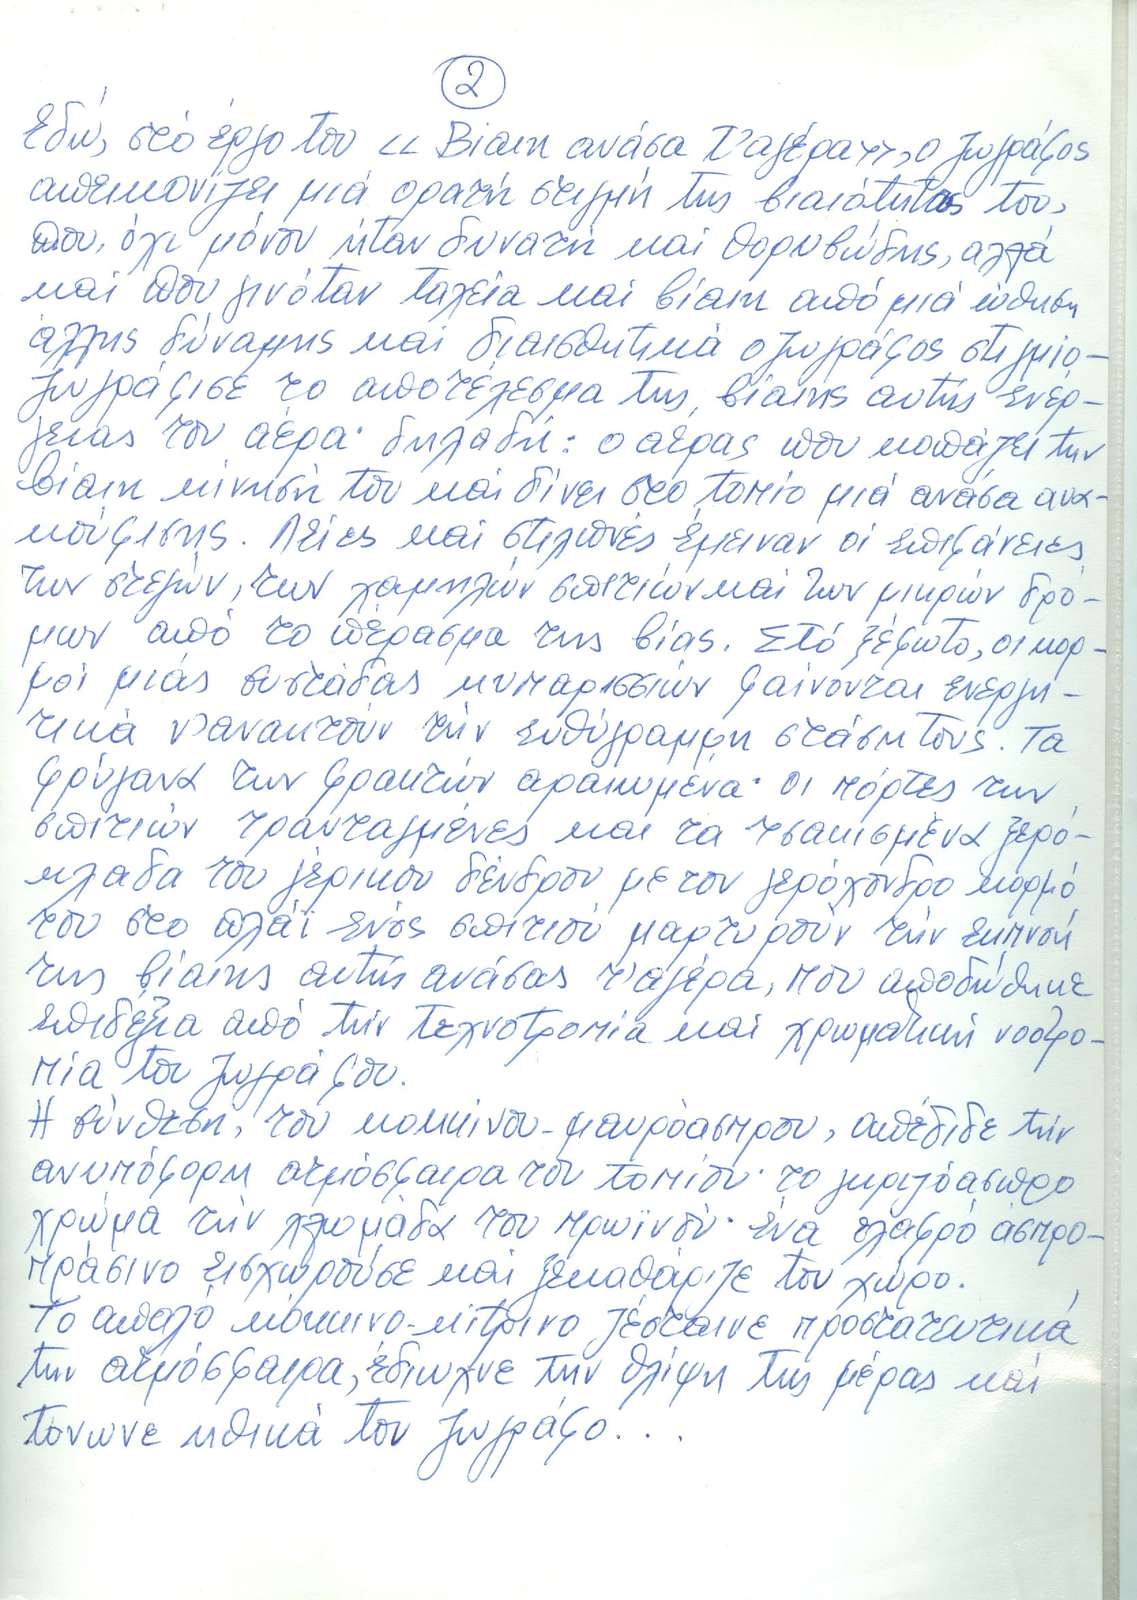 2
Εδώ, στό έργο του << Βίαιη ανάσα τ'αγέρα >>, ο ζωγράφος
απεικονίζει μιά ορατή στιγμή της βιαιότητας του,
που, όχι μόνον ήταν δυνατή και θορυβώδης, αλλά
και που γινόταν ταχεία και βίαιη από μιά ώθηση
άλλης δύναμης και διαισθητικά ο ζωγράφος στιγμιο-
ζωγράφισε το αποτέλεσμα της, βίαιης αυτής ενέρ-
γειας του αέρα· δηλαδή: ο αέρας που κοπάζει την
βίαιη κίνησή του και δίνει στο τοπίο μιά ανάσα ανα-
κούφισης. Λείες και στιλπνές έμειναν οι επιφάνειες
των στεγών, των χαμηλών σπιτιών και των μικρών δρό-
μων από το πέρασμα της βίας. Στό ξέφωτο, οι κορ-
μοί μιάς συστάδας κυπαρισσιών φαίνονται ενεργη-
τικά ν'ανακτούν τήν ευθύγραμμη στάση τους. Τα
φρύγανα των φρακτών αραιωμένα· οι πόρτες των
σπιτιών τρανταγμένες και τα τσακισμένα ξερό-
κλαδα του γέρικου δένδρου με τον γερόχονδρο κορμό
του στο πλάϊ ενός σπιτιού μαρτυρούν τήν εκπνοή
της βίαιης αυτής ανάσας τ'αγέρα, που αποδόθηκε
επιδέξια από τήν τεχνοτροπία και χρωματική νοοτρο-
πία του ζωγράφου.
Η σύνθεση, του κοκκινου-μαυρόασπρου, απέδιδε τήν
ανυπόφορη ατμόσφαιρα του τοπίου· το γκριζόασπρο
χρώμα τήν χλωμάδα του πρωϊνού· ένα ελαφρό άσπρο-
πράσινο εισχωρούσε και ξεκαθάριζε τον χώρο.
Το απαλό κόκκινο-κίτρινο ζέσταινε προστατευτικά
την ατμόσφαιρα, έδιωχνε την θλίψη της μέρας και
τόνωνε ηθικά τον ζωγράφο...